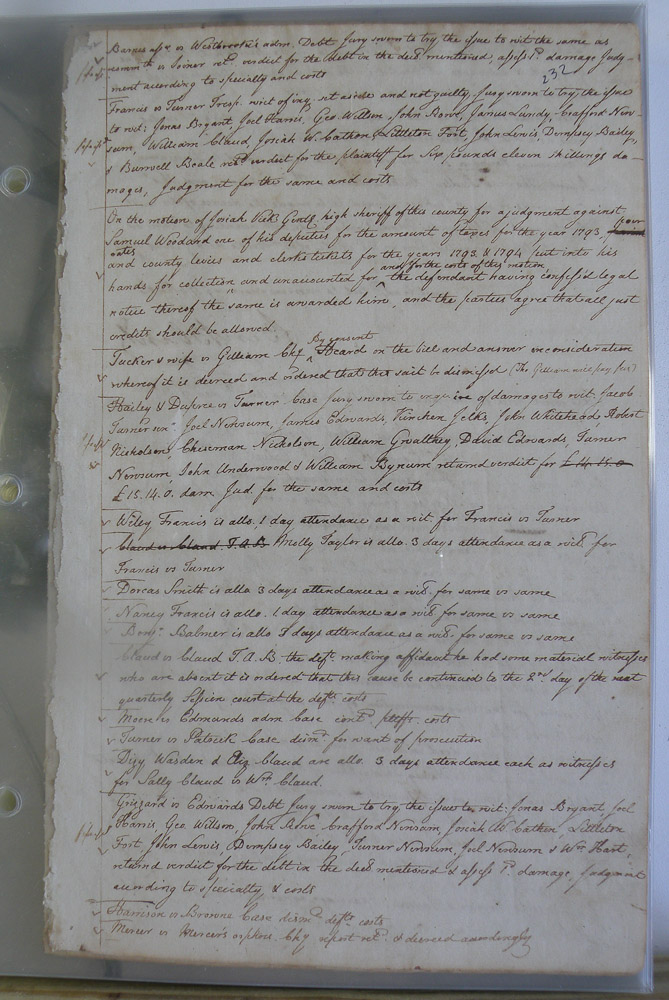 Barnes asse vs Westbrook's adm. Debt Jury sworn to try the issue to wit the same as
vs Joiner retd. verdict for the debt in the decl mentioned, assess 1d. damage Judg-
ment according to specialty and costs
232
Francis vs Turner Tresp. writ of inqy set aside and not guilty, Jury sworn to try the issue
to wit: Jonas Bryant, Joel Harris, Geo. Willson, John Rowe, James Lundy, Crafford New-
sum, William Claud, Josiah W. Cathon, Littleton Fort, John Lewis, Dempsey Bailey,
& Burwell Beale retd verdict for the plaintiff for Six pounds eleven shillings da-
mages, Judgment for the same and costs
On the motion of Josiah Vick Gentn. high sheriff of this county for a judgment against
Samuel Woodard one of his deputies for the amount of taxes for the year 1793 poor
rates
and county levies and clerks tickets for the years 1793 & 1794 put into his
and for the costs of this motion
hands for collection and unaccounted for the defendant having confess'd legal
notice thereof the same is awarded him, and the parties agree that all just
credits should be allowed
By consent
Tucker & wife vs Gilliam Chy Heard on the bill and answer on consideration
whereof it is decreed and ordered that this suit be dismissed (Tho. Gilliam will pay fees)
Hailey & Dupree vs Turner Case Jury sworn to enquire of damages to wit: Jacob
Turner senr. Joel Newsum, James Edwards, Kinchen Jelks, John Whitehead, Robert
Nicholson, Cheseman Nicholson, William Gwalthey David Edwards, Turner
Newsum John Underwood & William Bynum returned verdict for £14.15.0
£15.14.0. dam. Jud. for the same and costs
Wiley Francis is allo. 1 day attendance as a wit. for Francis vs Turner
Claud vs Claud T.A.B. Molly Taylor is allo. 3 days attendance as a wits. for
Francis vs Turner
Dorcas Smith is allo 3 days attendance as a wits. for same vs same
Nancy Francis is allo. 1 day attendance as a wits for same vs same
Benjn. Balmer is allo 3 days attendance as a wits. for same vs same
Claud vs Claud T.A.B. the deft. making affidavit he had some material witnesses
who are absent it is ordered that this cause be continued to the 2nd. day of the next
quarterly Session court at the defts. costs
Moore vs Edmunds adm Case contd. pltffs. costs
Turner vs Patrick Case dismd. for want of prosecution
Dizy Wasden & Eliz Claud are allo. 3 days attendance each as witnesses
for Sally Claud vs Wm. Claud.
Grizzard vs Edwards Debt Jury sworn to try the issue to wit: Jonas Bryant, Joel
Harris, Geo. Willson, John Rowe, Crafford Newsum, Josiah W. Cathon, Littleton
Fort, John Lewis, Dempsey Bailey, Turner Newsum, Joel Newsum & Wm. Hart,
returned verdict for the debt in the decl mentioned & assess 1d. damage, Judgment
according to specialty & costs
Harrison vs Browne Case dismd. defts. costs
Mercer vs Mercer's orphans. Chy report retd. & decreed accordingly